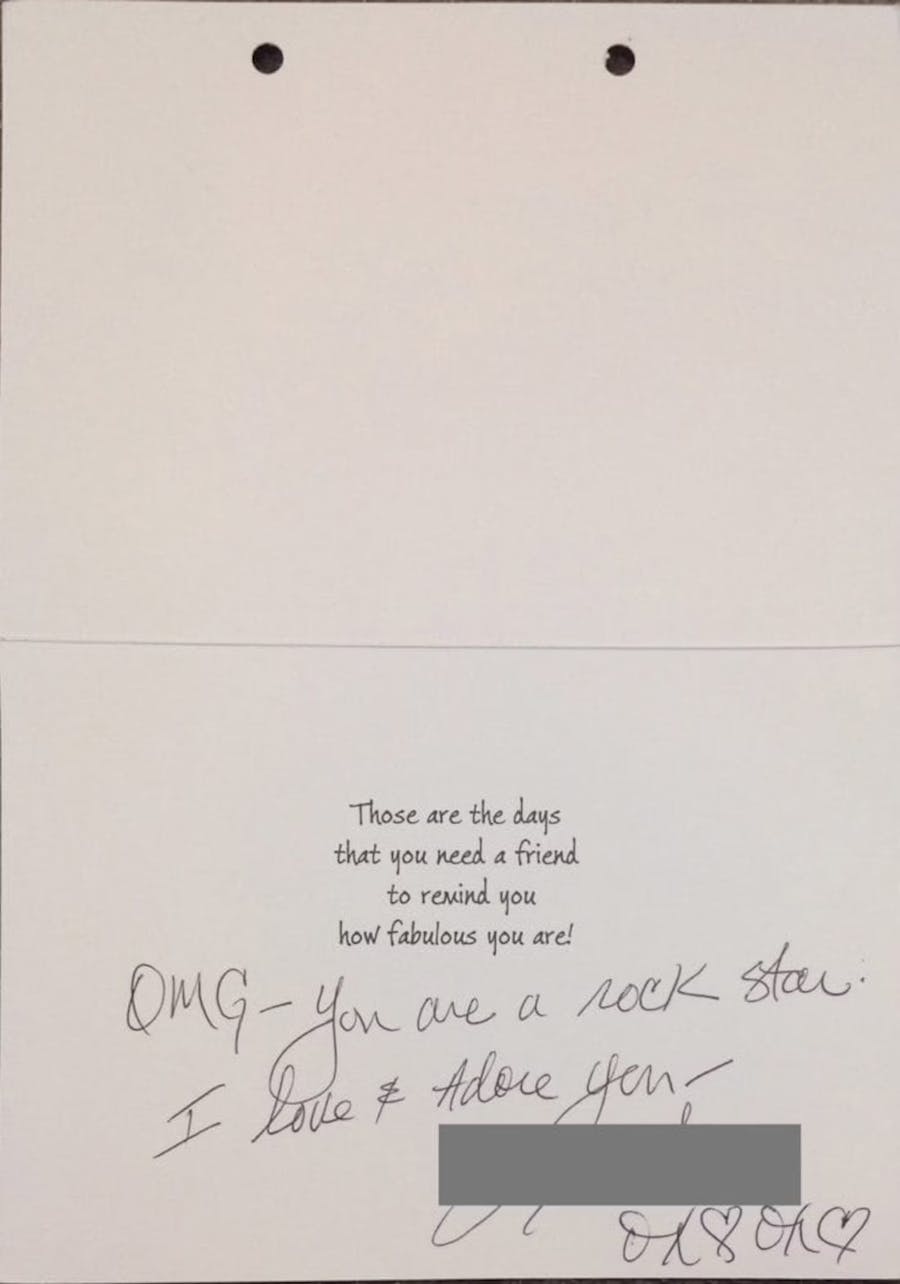 Those are the days
that you need a friend
to remind you
how fabulous you are!
OMG - You are a rock star.
I love & Adore you -
OX♡OX♡